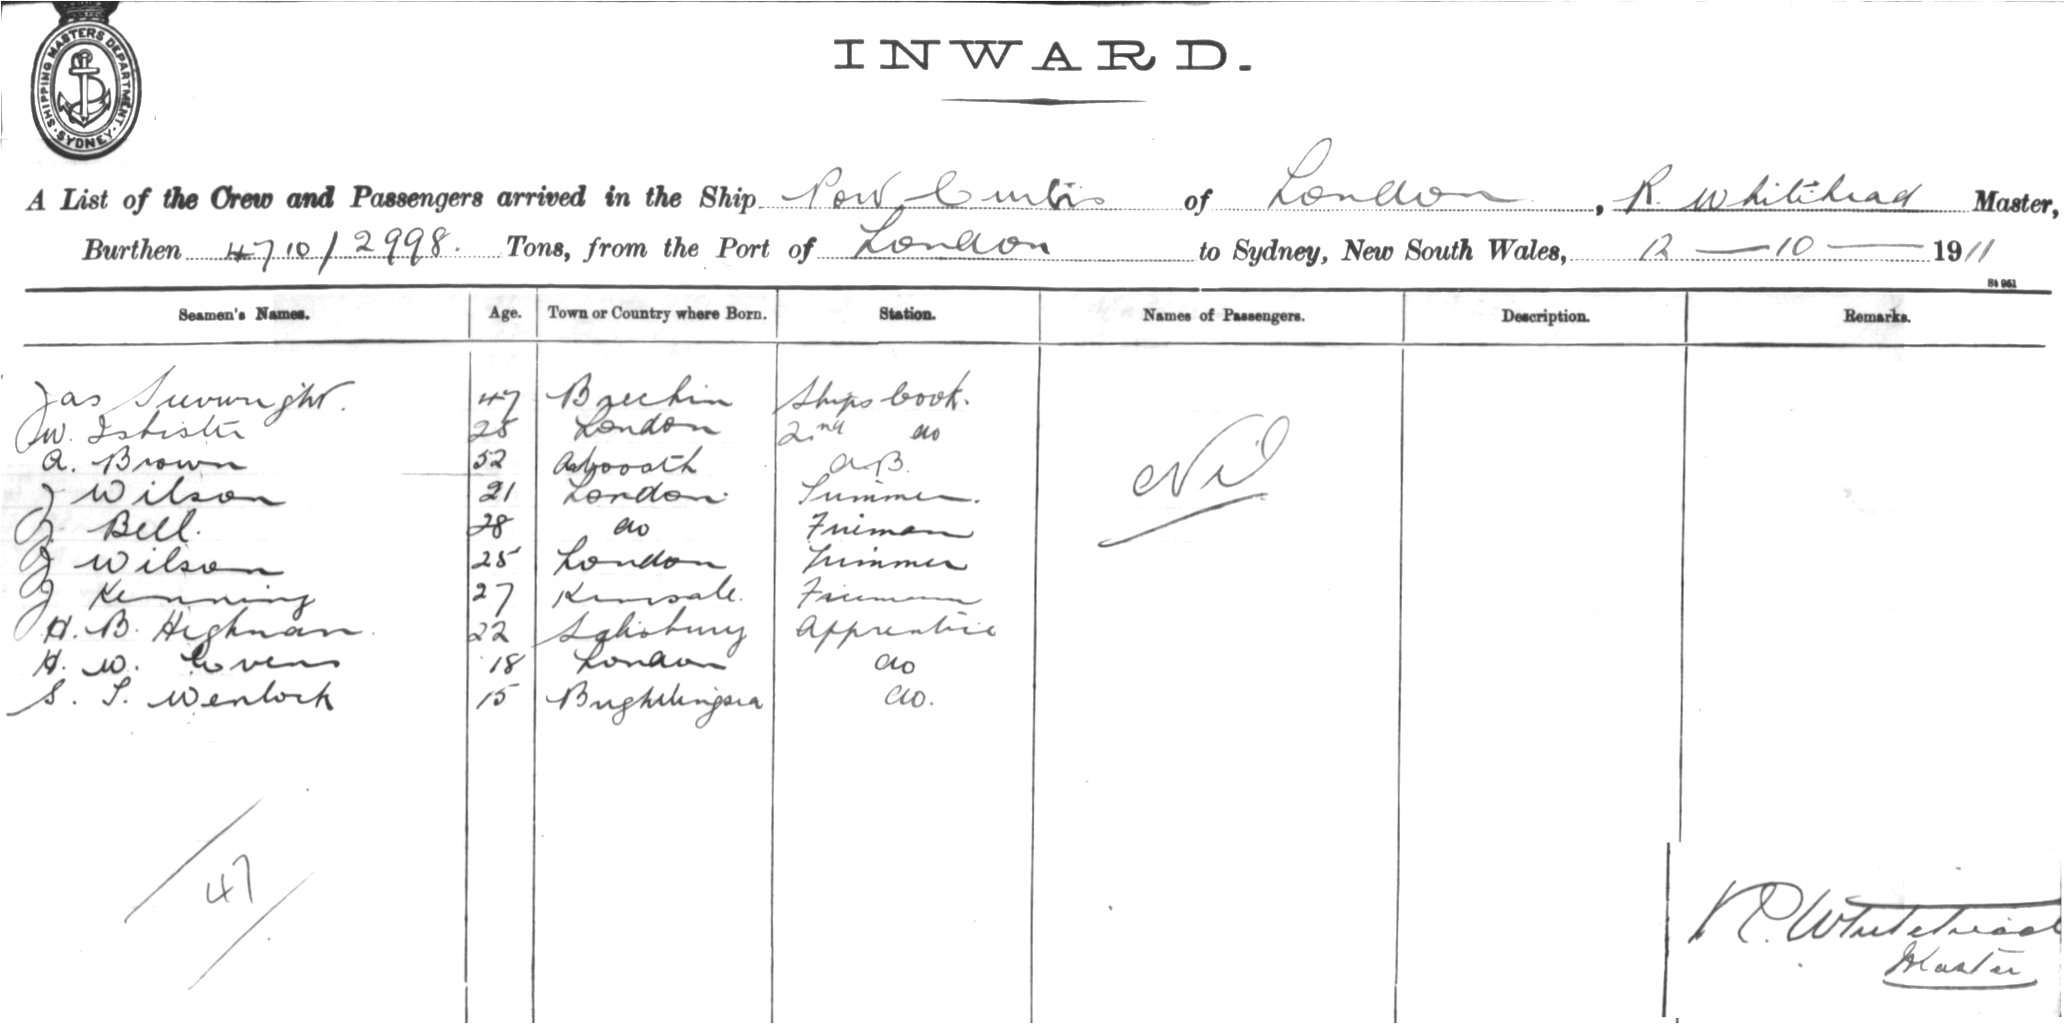 SHIPPING MASTERS DEPARTMENT
SYDNEY
INWARD.
A List of the Crew and Passengers arrived in the Ship Port Curtis of London, R. Whitehead Master,
Burthen 4710/2998. Tons, from the Port of London to Sydney, New South Wales, 12 — 10 — 1911
St 961
Seamen's Names. Age. Town or Country where Born. Station. Names of Passengers. Description. Remarks.
Jas 47 Brechin Ships Cook.
W. Isbister 25 London 2nd do
A. Brown 52 Arbroath A.B.
J Wilson 21 London. Trimmer.
J. Bell. 28 do Fireman
J Wilson 25 London Trimmer
J Kenning 27 Kinsale. Fireman
H. B. Highman. 22 Salisbury Apprentice
H. W. Evens 18 London do
S. T. Wenlock 15 Brightlingsea do.
Nil
47
R. Whitehead
Master